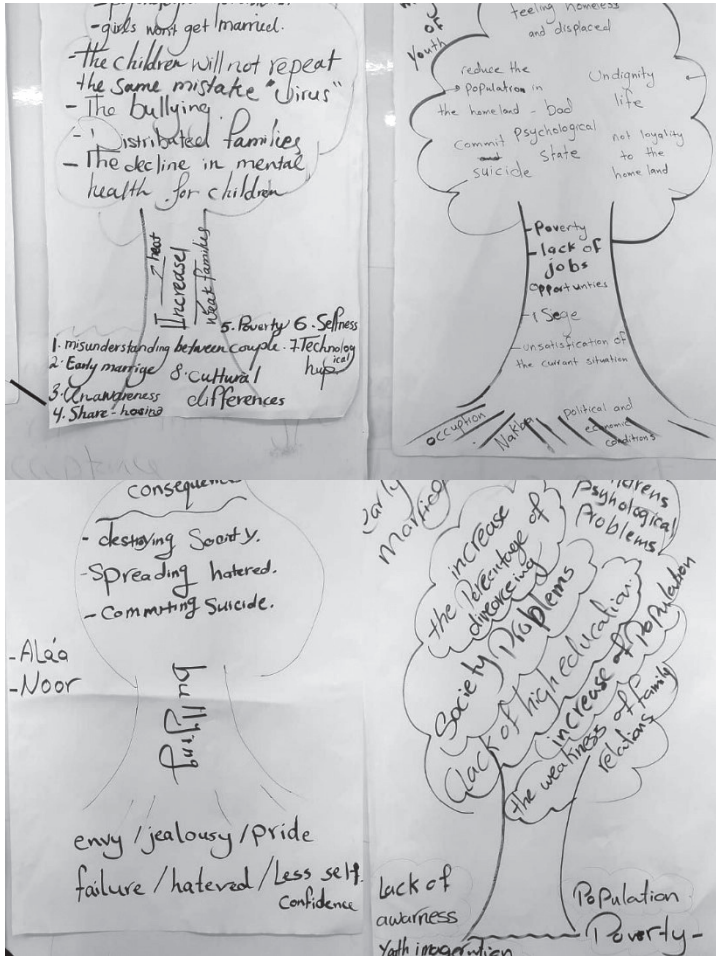 - girls won't get married.
- the children will not repeat
the same mistake "Virus"
- The bullying.
- Distributed families
- The decline in mental
health for children
Increase
weak families
5. Poverty 6. Selfness
1. misunderstanding between couple. 7 Technolog
ical
2. Early marrige
8. cultural
3. Unawareness
differences
4. Share-hosing
of
Youth
feeling homeless
and displaced
reduce the
population in
the homeland - bad
Undignity
life
commit
suicide
psychological
state
not loyality
to the
home land
- Poverty
- lack of
jobs
opportunities
- Sege
- unsatisfication of
the currant situation
occuption
Nakba
political and
economic
conditions
consequence
- destroying Society.
- Spreading hatered.
- Commiting Suicide.
- Aláa
- Noor
bullying
envy / jealousy / pride
failure / hatered / Less self.
Confidence
early
Marriage
Psyhological
Problems
increase
the Percentage of
divorceing
Society Problems
Lack of high education
increase of Population
the weakness of family
relations
Lack of
awarness
Population
Poverty -